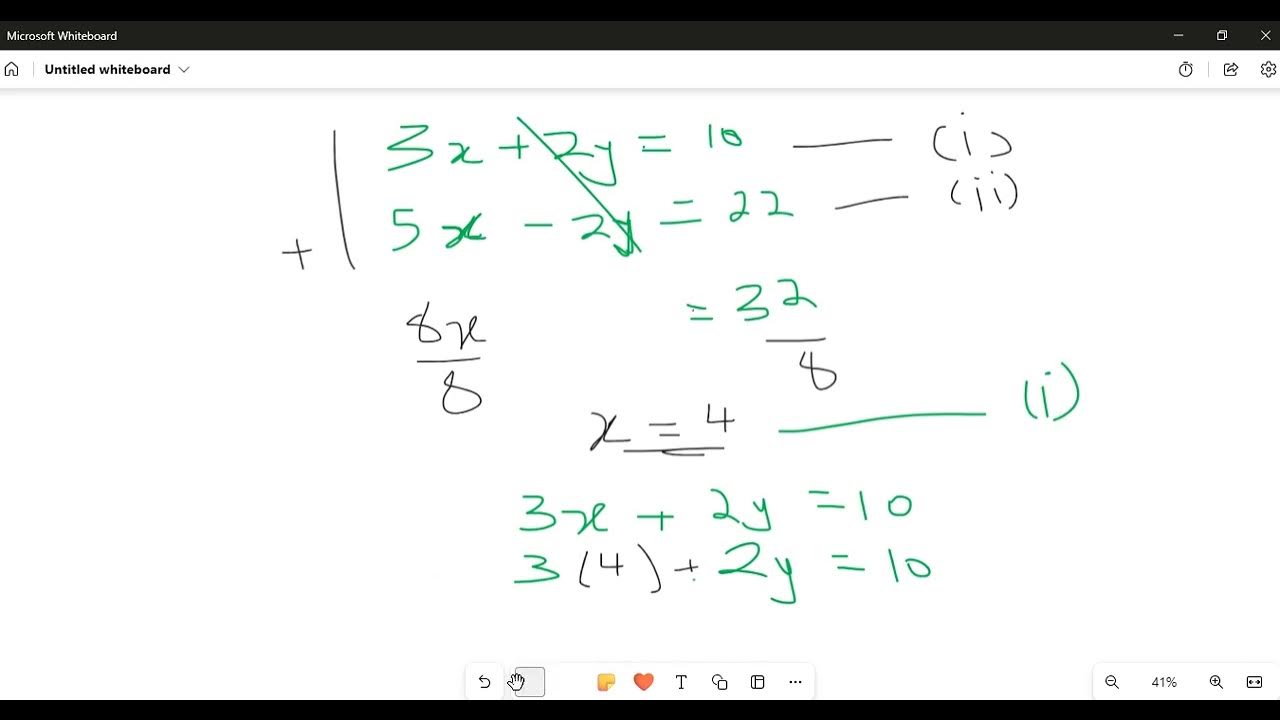 Microsoft Whiteboard
Untitled whiteboard
3x + 2y = 10 — (i)
5x - 2y = 22 — (ii)
+
8x = 32
8 8
x = 4 — (i)
3x + 2y = 10
3(4) + 2y = 10
T
41%